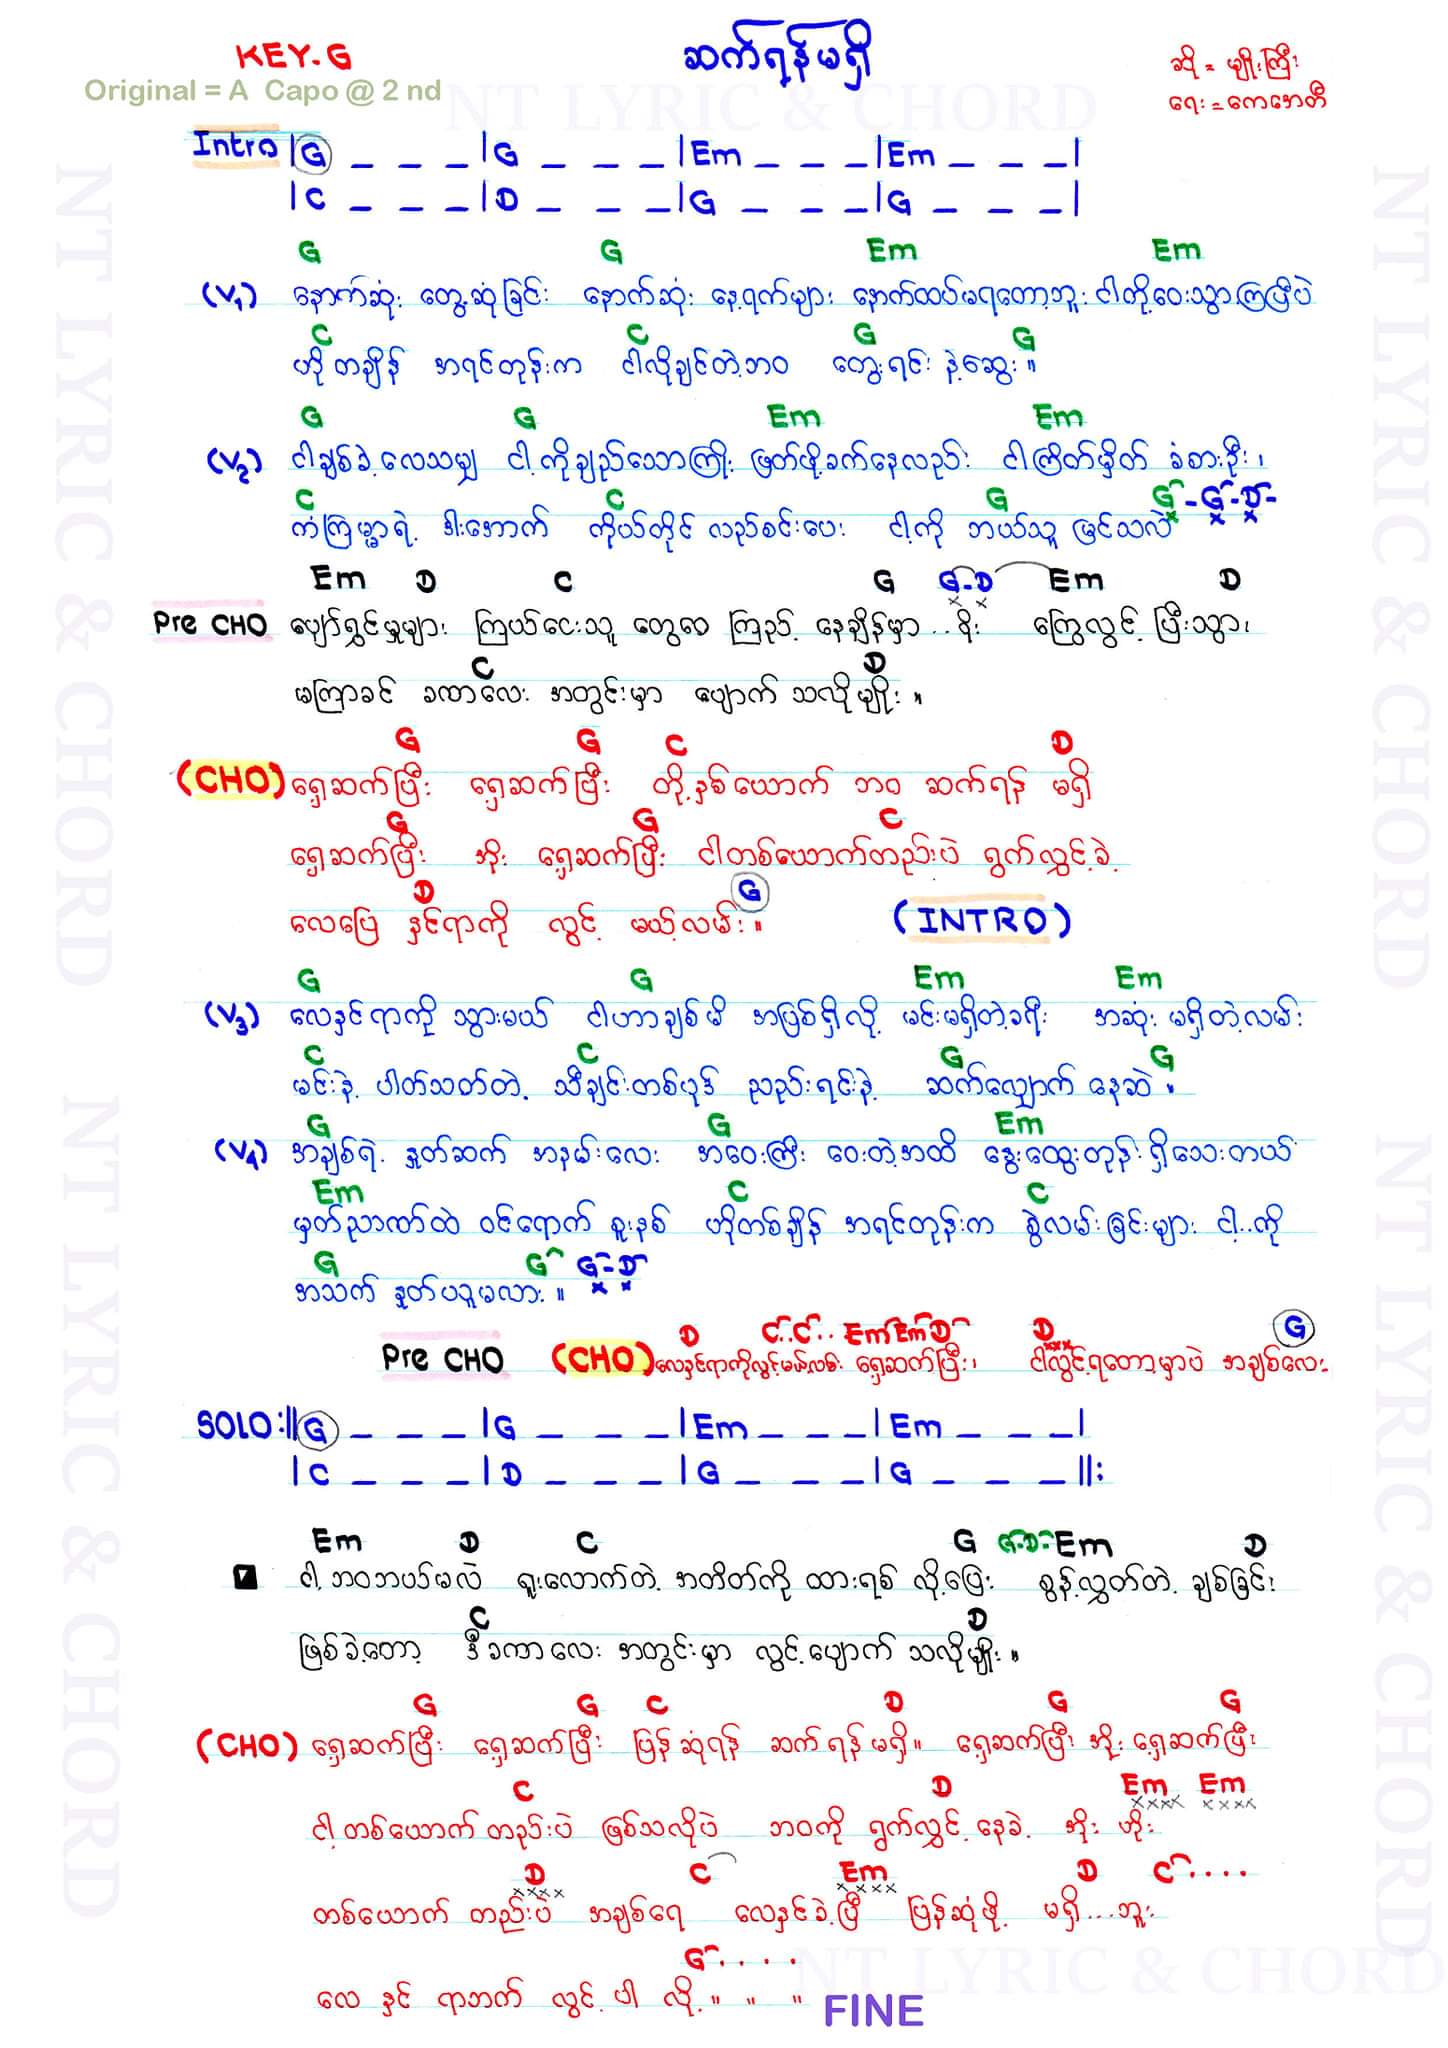 KEY.G
ဆက်ရန်မရှိ
ဆို = မျိုးကြီး
Original = A Capo @ 2 nd
ရေး = ကေအေတီ
NT LYRIC & CHORD
Intro |G _ _ _ |G _ _ _ |Em _ _ _ |Em _ _ _ |
|C _ _ _ |D _ _ _ |G _ _ _ |G _ _ _ |
G G Em Em
(V1) နောက်ဆုံး တွေ့ဆုံခြင်း နောက်ဆုံး နေ့ရက်များ နောက်ထပ်မရတော့ဘူး ငါတို့ဝေးသွားကြပြီပဲ
C C G G
ဟိုတချိန် အရင်တုန်းက ငါလိုချင်တဲ့ဘဝ တွေးရင်း နဲ့ဆွေး။
G G Em Em
(V2) ငါချစ်ခဲ့လေသမျှ ငါ့ကိုချည်သောကြိုး ဖြတ်ဖို့ခက်နေလည်း ငါကြိတ်မှိတ် ခံစားဦး၊
C C G G - G - D -
ကံကြမ္မာရဲ့ ဒါးအောက် ကိုယ်တိုင် လည်စင်းပေး ငါ့ကို ဘယ်သူ မြင်သလဲ
Em D C G G-D Em D
Pre CHO ပျော်ရွှင်မှုများ ကြယ်ငေးသူ တွေဝေ ကြည့် နေချိန်မှာ .. ခိုး ကြွေလွင့် ပြီးသွား
C D
မကြာခင် ခဏလေး အတွင်းမှာ ပျောက် သလိုမျိုး။
G G C D
(CHO) ရှေ့ဆက်ပြီး ရှေ့ဆက်ပြီး တို့နှစ်ယောက် ဘဝ ဆက်ရန် မရှိ
G G C
ရှေ့ဆက်ပြီး အိုး ရှေ့ဆက်ပြီး ငါတစ်ယောက်တည်းပဲ ရွက်လွှင့်ခဲ့
D G
လေပြေ နှင်ရာကို လွင့် မယ့်လမ်း။ (INTRO)
G G Em Em
(V3) လေနှင်ရာကို သွားမယ် ငါဟာချစ်မိ အပြစ်ရှိလို့ မင်းမရှိတဲ့ခရီး အဆုံး မရှိတဲ့လမ်း
C C G G
မင်းနဲ့ ပါတ်သတ်တဲ့ သီချင်းတစ်ပုဒ် ညည်းရင်းနဲ့ ဆက်လျှောက် နေဆဲ။
G G Em
(V4) အချစ်ရဲ့ နှုတ်ဆက် အနမ်းလေး အဝေးကြီး ဝေးတဲ့အထိ နွေးထွေးတုန်း ရှိသေးတယ်
Em C C
မှတ်ညာဏ်ထဲ ဝင်ရောက် စူးနစ် ဟိုတစ်ချိန် အရင်တုန်းက စွဲလမ်းခြင်းများ ငါ့..ကို
G G G-D
အသက် နှုတ်ပယူမလား။
D C..C.. Em Em D D G
Pre CHO (CHO) လေနှင်ရာကိုလွင့်မယ့်လမ်း ရှေ့ဆက်ပြီး၊ ငါလွင့်ရတော့မှာပဲ အချစ်လေး
SOLO :||G _ _ _ |G _ _ _ |Em _ _ _ |Em _ _ _ |
|C _ _ _ |D _ _ _ |G _ _ _ |G _ _ _ ||:
Em D C G G-D-Em D
ငါ့ဘဝဘယ်မလဲ ရူးလောက်တဲ့ အတိတ်ကို ထားရစ် လို့ပြေး စွန့်လွှတ်တဲ့ ချစ်ခြင်း
C D
ဖြစ်ခဲ့တော့ ဒီခဏလေး အတွင်းမှာ လွင့်ပျောက် သလိုမျိုး။
G G C D G G
(CHO) ရှေ့ဆက်ပြီး ရှေ့ဆက်ပြီး ပြန်ဆုံရန် ဆက်ရန်မရှိ။ ရှေ့ဆက်ပြီး အိုး ရှေ့ဆက်ပြီး
C D Em Em
ငါ့တစ်ယောက်တည်းပဲ ဖြစ်သလိုပဲ ဘဝကို ရွက်လွှင့် နေခဲ့ အိုး ဟိုး
D C Em D C....
တစ်ယောက် တည်းပဲ အချစ်ရေ လေနှင်ခဲ့ပြီ ပြန်ဆုံဖို့ မရှိ...ဘူး
G....
လေ နှင် ရာဘက် လွင့် ပါ လို့။ ။ ။ FINE